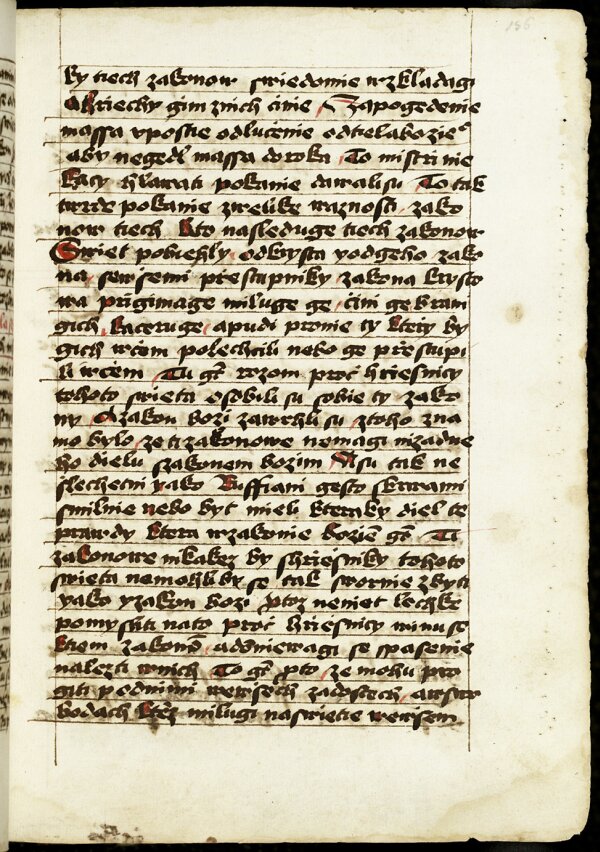 156
ky tiech zakonow swiedomie wzkladagi
a hriechy gim znich cinie Zapogedenie
massa vpostie odlucenie odtielabozieº
aby negedl massa doroka To mistri nie
kacy hlawati pokanie dawalisu To tak
twrde pokanie zwelike waznosti zako
now tiech kto nasleduge tiech zakonow
Swiet pobiehly odkrysta podgeho zako
na sewsemi přestupniky zakona krysto
wa prigimage miluge ge cim ge kram
gich kaceruge apudi promie ty kteřy by
gich wcem polechcili nebo ge přestupi
li wcem Tu gt rozom proc hriesnicy
tohoto swieta osobili su sobie ty zako
ny A zakon bozi zawrhli su ztoho zna
mo bylo ze ti zakonowe nemagi nizadne
ho dielu szakonem bozim Asu tak ne
slechetni yako Ruffiani gesto skurwami
smilnie nebo byt mieli kteraky diel te
prawdy ktera wzakonie bozie gt Ti
zakonowe nikakez by shriesniky tohoto
swieta nemohli by se tak swornie zbyti
yako yzakon bozi ptoz neniet lechke
pomysliti nato proc hriesnicy mimo se
kiem zakono addniewagi se spasenie
nalezti wnich To gt pto ze mohu pro
giti podnimi wewsech zadostech awswo
bodach ktez milugi naswietie wewsem